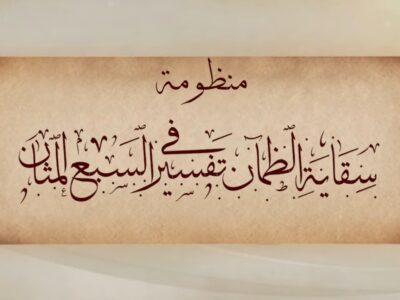 منظومة
سِقَايَةِ الظَّمْآن في تَفْسِيرِ السَّبْعِ المَثَان